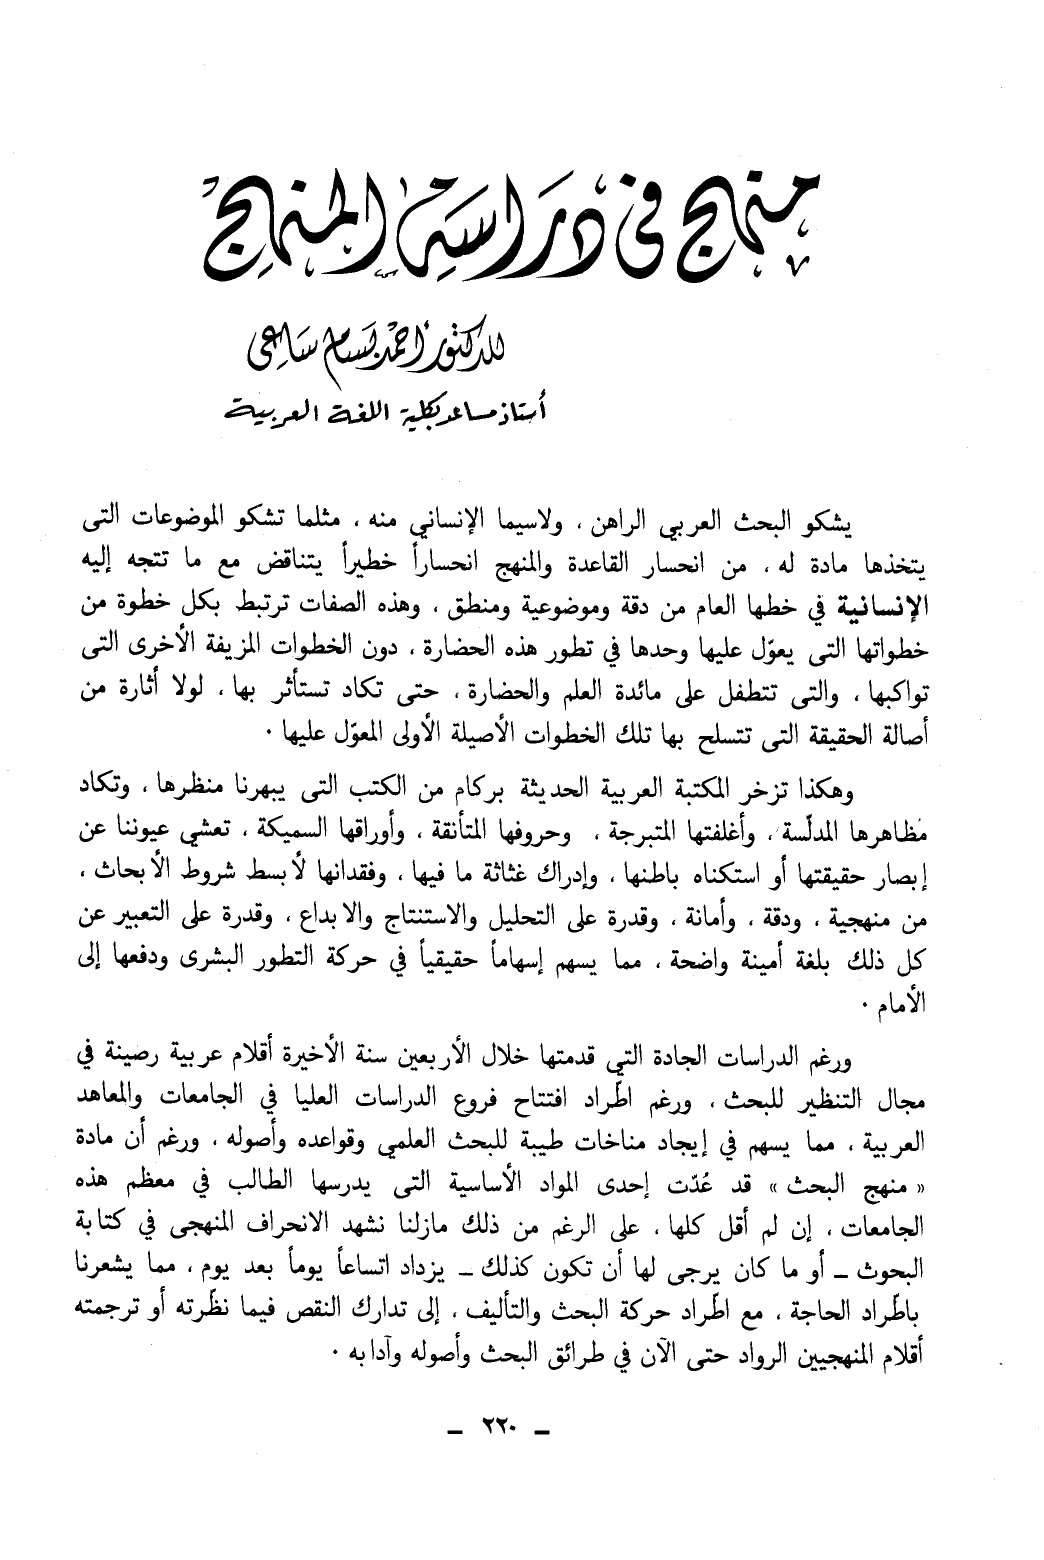 منهج في دراسة المنهج
للدكتور أحمد بسام ساعي
أستاذ مساعد بكلية اللغة العربية
يشكو البحث العربي الراهن ، ولاسيما الإنساني منه ، مثلما تشكو الموضوعات التى
يتخذها مادة له ، من انحسار القاعدة والمنهج انحساراً خطيراً يتناقض مع ما تتجه إليه
الإنسانية في خطها العام من دقة وموضوعية ومنطق ، وهذه الصفات ترتبط بكل خطوة من
خطواتها التى يعوّل عليها وحدها في تطور هذه الحضارة ، دون الخطوات المزيفة الأخرى التى
تواكبها ، والتى تتطفل على مائدة العلم والحضارة ، حتى تكاد تستأثر بها ، لولا أثارة من
أصالة الحقيقة التى تتسلح بها تلك الخطوات الأصيلة الأولى المعوّل عليها ·
وهكذا تزخر المكتبة العربية الحديثة بركام من الكتب التى يبهرنا منظرها ، وتكاد
مظاهرها المدلّسة ، وأغلفتها المتبرجة ، وحروفها المتأنقة ، وأوراقها السميكة ، تعشي عيوننا عن
إبصار حقيقتها أو استكناه باطنها ، وإدراك غثاثة ما فيها ، وفقدانها لأبسط شروط الأبحاث ،
من منهجية ، ودقة ، وأمانة ، وقدرة على التحليل والاستنتاج والابداع ، وقدرة على التعبير عن
كل ذلك بلغة أمينة واضحة ، مما يسهم إسهاماً حقيقياً في حركة التطور البشرى ودفعها إلى
الأمام ·
ورغم الدراسات الجادة التي قدمتها خلال الأربعين سنة الأخيرة أقلام عربية رصينة في
مجال التنظير للبحث ، ورغم اطّراد افتتاح فروع الدراسات العليا في الجامعات والمعاهد
العربية ، مما يسهم في إيجاد مناخات طيبة للبحث العلمي وقواعده وأصوله ، ورغم أن مادة
« منهج البحث » قد عُدّت إحدى المواد الأساسية التى يدرسها الطالب في معظم هذه
الجامعات ، إن لم أقل كلها ، على الرغم من ذلك مازلنا نشهد الانحراف المنهجى في كتابة
البحوث ــ أو ما كان يرجى لها أن تكون كذلك ــ يزداد اتساعاً يوماً بعد يوم ، مما يشعرنا
باطّراد الحاجة ، مع اطّراد حركة البحث والتأليف ، إلى تدارك النقص فيما نظّرته أو ترجمته
أقلام المنهجيين الرواد حتى الآن في طرائق البحث وأصوله وآدابه ·
ــ ٢٢٠ ــ